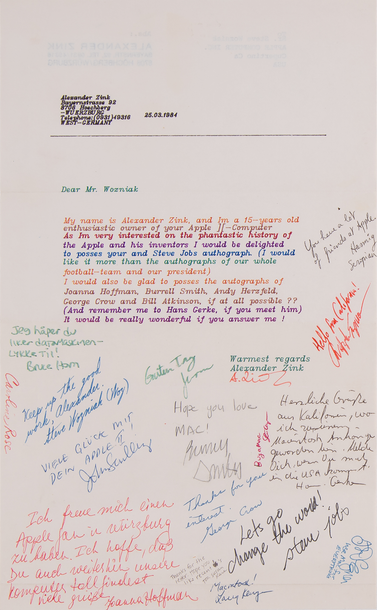 Alexander Zink
Bayernstrasse 92
8706 Hoechberg
-WUERZBURG
Telephone:(0931)49316
WEST-GERMANY
25.03.1984
Dear Mr. Wozniak
My name is Alexander Zink, and Im a 15-years old
enthusiastic owner of your Apple ][-Computer
As Im very interested on the phantastic history of
the Apple and his inventors I would be delighted
to posses your and Steve Jobs authograph. (I would
like it more than the authographs of our whole
football-team and our president)
I would also be glad to posses the autographs of
Joanna Hoffman, Burrell Smith, Andy Hersfeld,
George Crow and Bill Atkinson, if at all possible ??
(And remember me to Hans Gerke, if you meet him)
It would be really wonderful if you answer me !
Warmest regards
Alexander Zink
You have a lot
of friends at Apple
Hello from California!
Jeg håper du
liker datamaskinen-
Lykke til!
Bruce Horn
Caroline Rose
Keep up the good
work, Alexander.
Steve Wozniak (Woz)
Guten Tag
from
VIELE GLÜCK MIT
DEIN APPLE II!
John Sculley
Hope you love
MAC!
Herzliche Grüße
aus Kalifornien, wo
ich
Macintosh
geworden bin. Melde
Dich, wenn Du mal
in die USA kommst.
Thanks for your
interest.
George Crow
Let's go
change the world!
steve jobs
Ich freue mich einen
Apple fan in Würzburg
zu haben. Ich hoffe, daß
Du auch weiterhin unsere
Komputer toll findest
viele Grüße
Joanna Hoffman
Macintosh!
Larry Kenyon